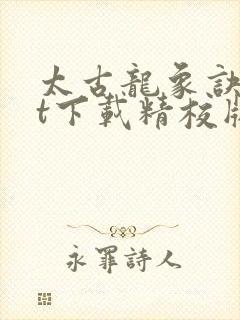 太古龍象訣
t下載精校版
永罪詩人